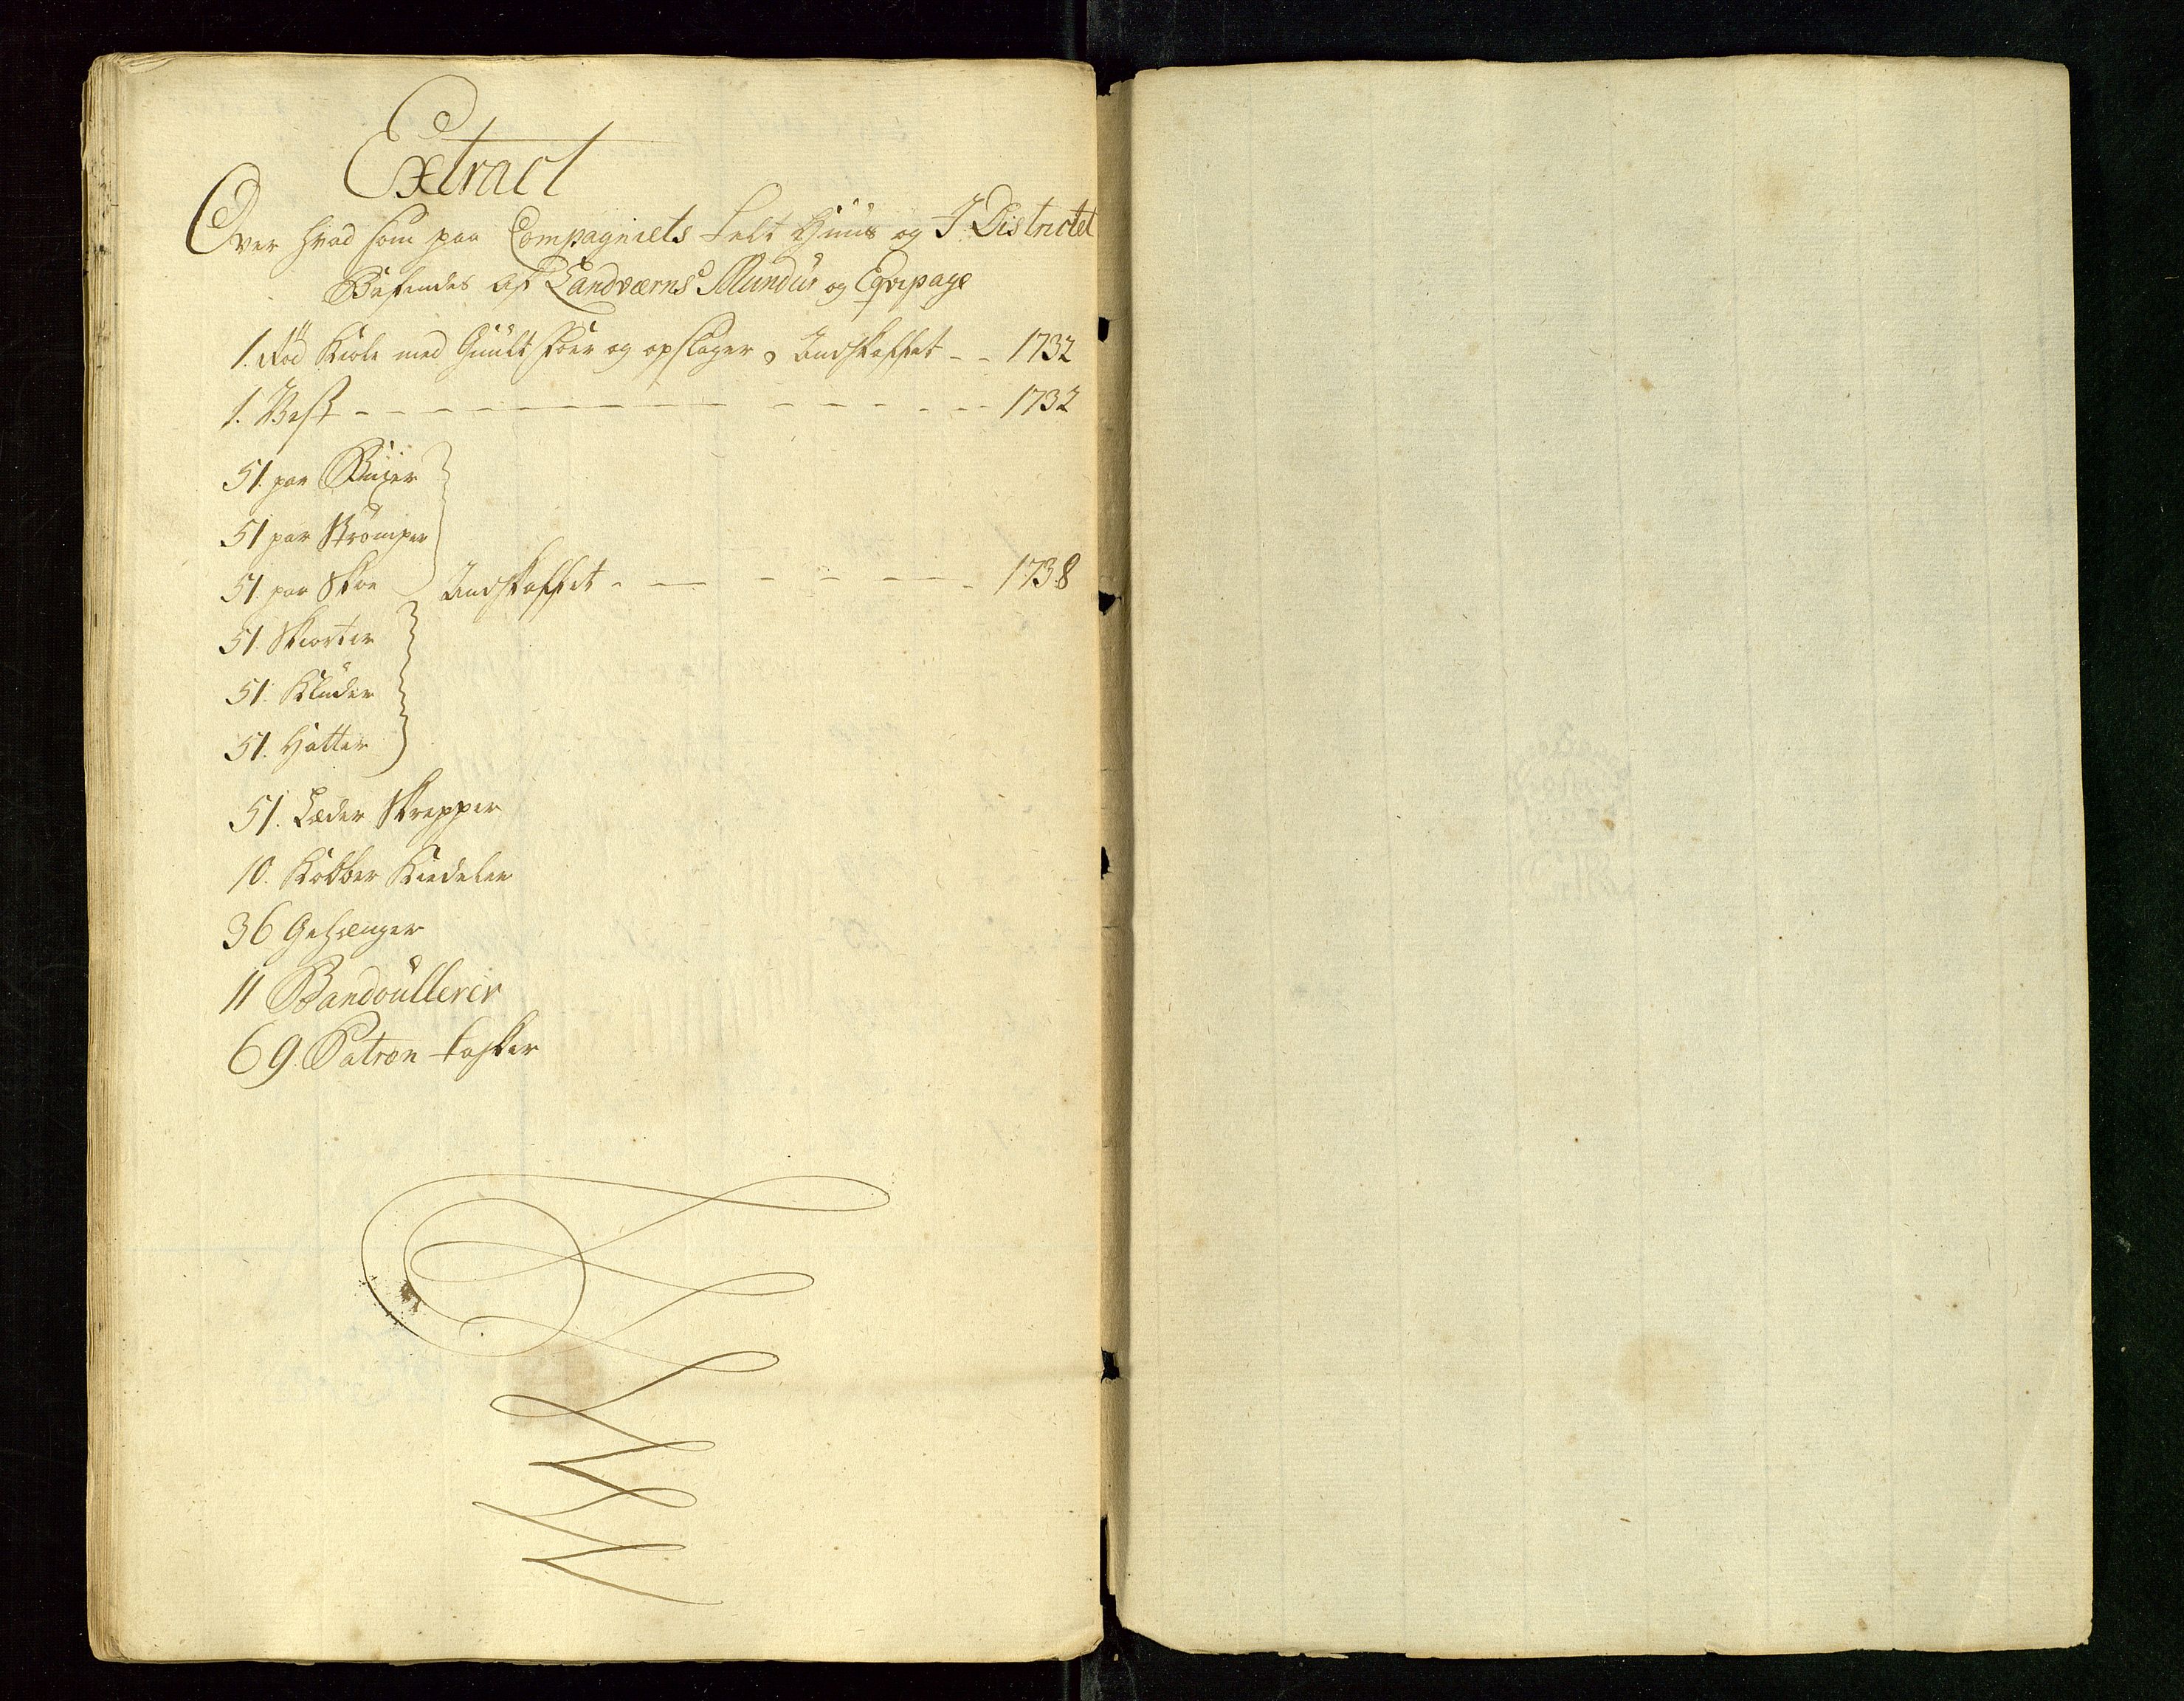 Extract
Over hvad som paa Compagniets Telt Huus og I Districtet
Befindes af Landværns Mundur og Eqvipage
1. Rød Kiole med Guult Foer og opslager, Indskaffet - - 1732
1. Vest - - - - - - - - - - - - - - 1732
51. par Buxer
51 par Strømper
51 par Skoe Indskaffet - - - - - - - 1738
51. Skiorter
51. Kluder
51. Hatter
51. Læder Skrepper
10. Kobber Kiedeler
36 Gehænger
11 Bandoullerer
69. Patron tasker